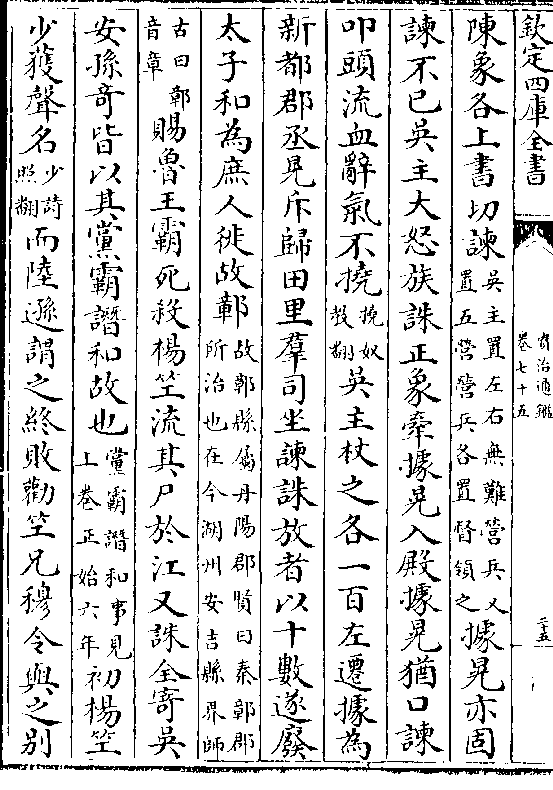 欽定四庫全書
資治通鑑
卷七十五
二十五
陳象各上書切諫吳主置左右無難營兵又
置五營營兵各置督領之據晃亦固
諫不已吳主大怒族誅正象牽據晃入殿據晃猶口諫
叩頭流血辭氣不撓撓奴
教翻吳主杖之各一百左遷據為
新都郡丞晃斥歸田里羣司坐諫誅放者以十數遂廢
太子和為庶人徙故鄣故鄣縣屬丹陽郡賢曰秦鄣郡
所治也在今湖州安吉縣界師
古曰鄣
音章賜魯王霸死殺楊竺流其尸於江又誅全寄吳
安孫奇皆以其黨霸譖和故也黨霸譖和事見
上卷正始六年初楊竺
少獲聲名少詩
照翻而陸遜謂之終敗勸竺兄穆令與之别